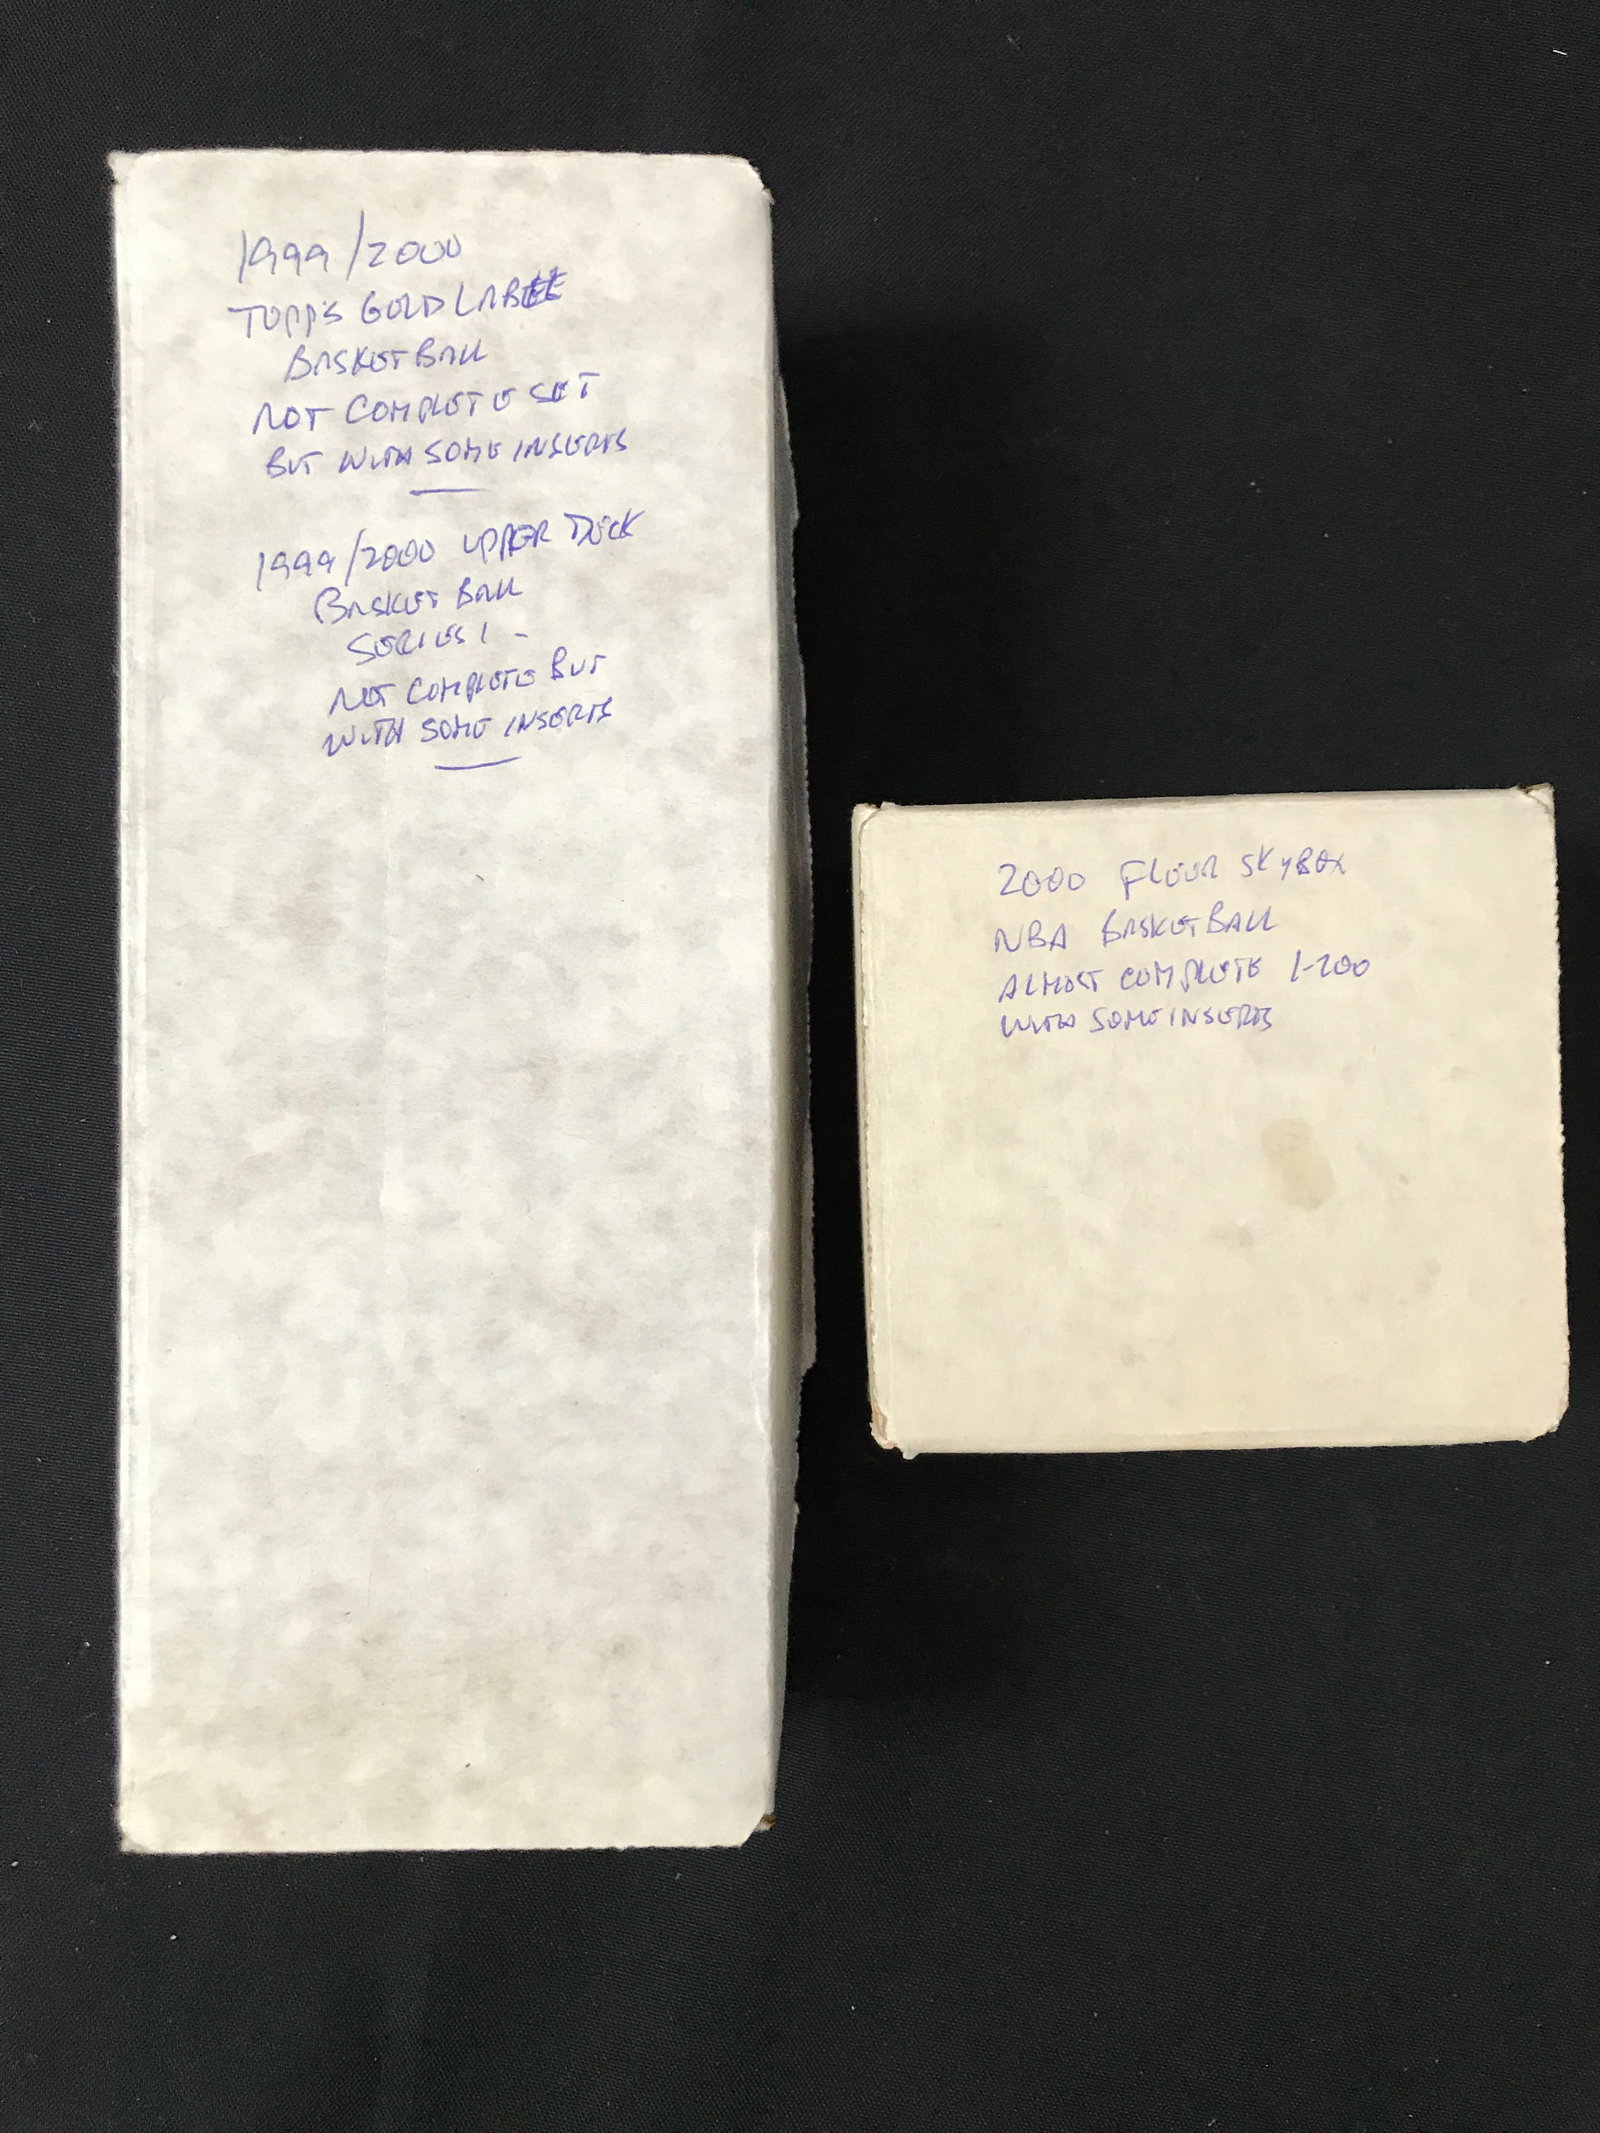 1999/2000
TOPPS GOLD LABEL
BASKETBALL
NOT COMPLETE SET
BUT WITH SOME INSERTS
1999/2000 UPPER DECK
BASKETBALL
SERIES 1 -
NOT COMPLETE BUT
WITH SOME INSERTS
2000 FLEER SKYBOX
NBA BASKETBALL
ALMOST COMPLETE 1-200
WITH SOME INSERTS